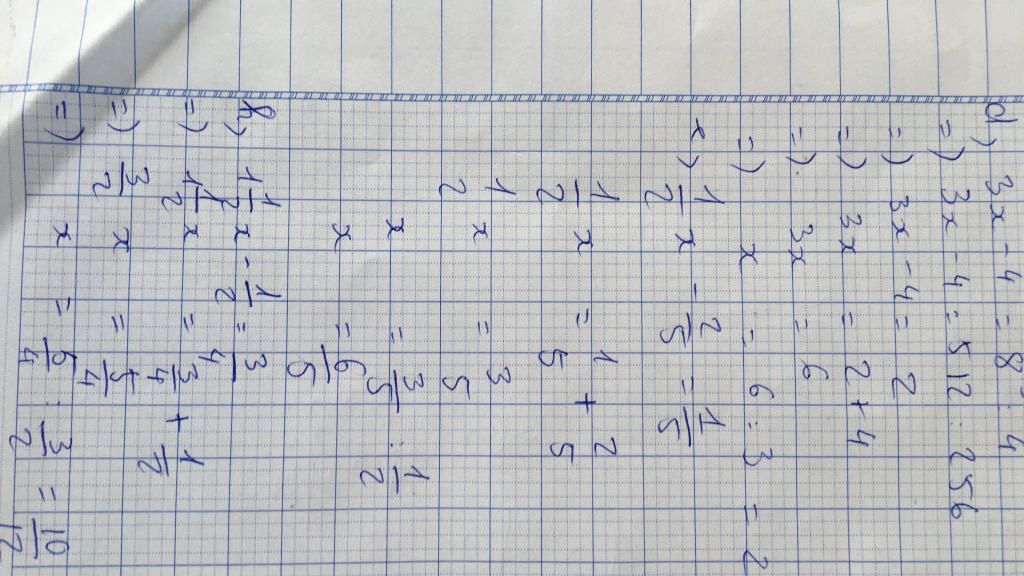 d) 3x - 4 = 8³ : 4⁴
=) 3x - 4 = 512 : 256
=) 3x - 4 = 2
=) 3x = 2 + 4
=) 3x = 6
=) x = 6 : 3 = 2
e) 1/2 x - 2/5 = 1/5
1/2 x = 1/5 + 2/5
1/2 x = 3/5
x = 3/5 : 1/2
x = 6/5
h) 1 1/2 x - 1/2 = 3/4
=) 1 1/2 x = 3/4 + 1/2
=) 3/2 x = 5/4
=) x = 5/4 : 3/2 = 10/12